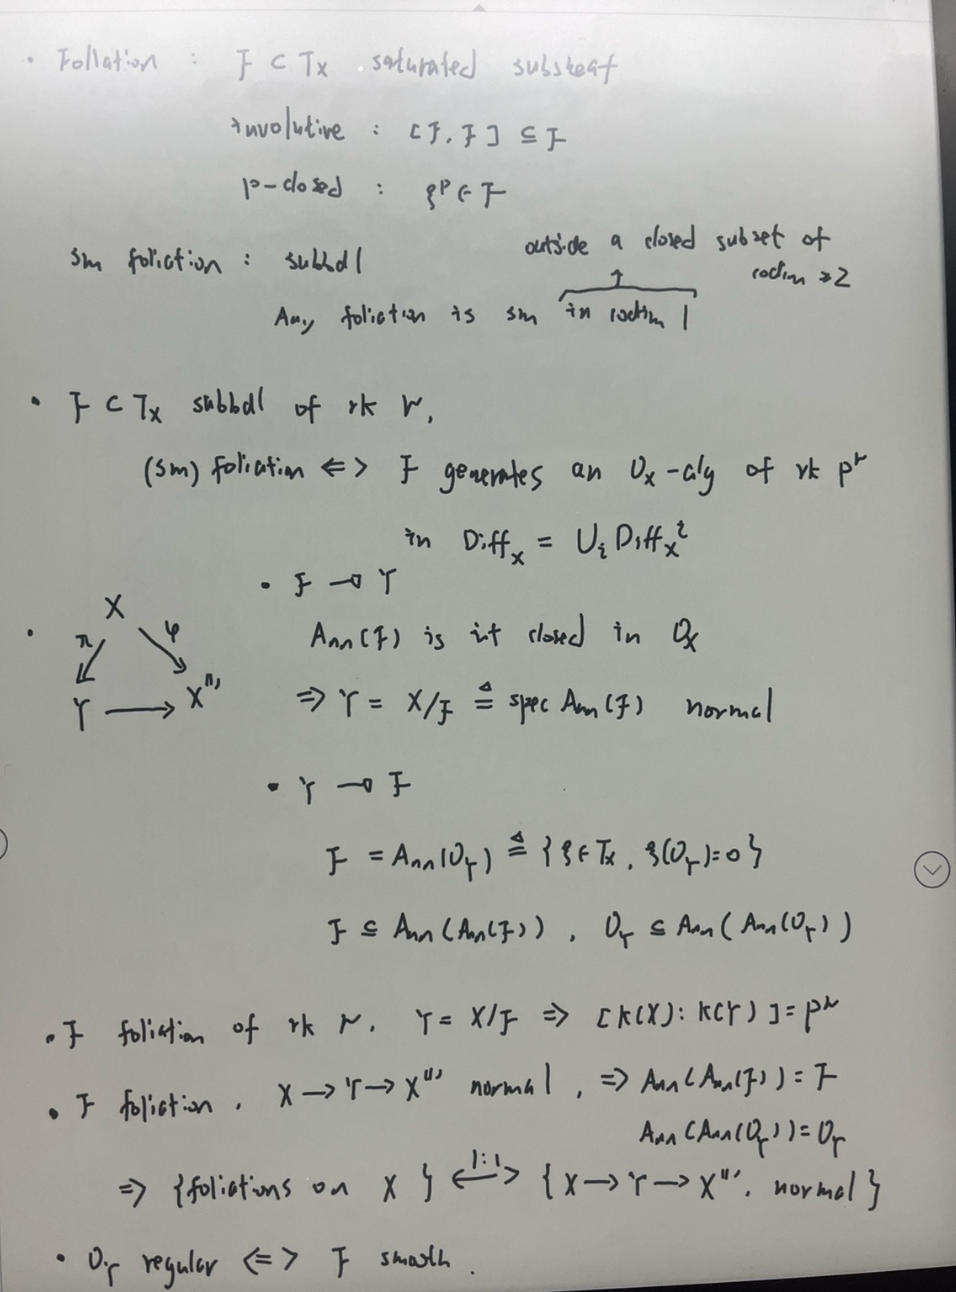 • Foliation : F ⊂ T_X . saturated subsheaf
involutive : [F, F] ⊆ F
p-closed : ξ^p ∈ F
outside a closed subset of
sm foliation : subbdl
codim ≥2
↑
Any foliation is sm in codim 1
• F ⊂ T_X subbdl of rk r,
(sm) foliation <=> F generates an O_X-alg of rk p^r
in Diff_X = U_i Diff_X^i
• F ⊸ Y
X
• π φ Ann(F) is int closed in O_X
Y → X^(1) ⇒ Y = X/F ≜ spec Ann(F) normal
• Y ⊸ F
F = Ann(O_Y) ≜ {ξ ∈ T_X, ξ(O_Y)=0}
F ⊆ Ann(Ann(F)), O_Y ⊆ Ann(Ann(O_Y))
• F foliation of rk r. Y = X/F ⇒ [K(X):K(Y)] = p^r
• F foliation, X → Y → X^(1) normal, ⇒ Ann(Ann(F)) = F
Ann(Ann(O_Y)) = O_Y
⇒ {foliations on X} <-1:1-> {X → Y → X^(1), normal}
• O_Y regular <=> F smooth.